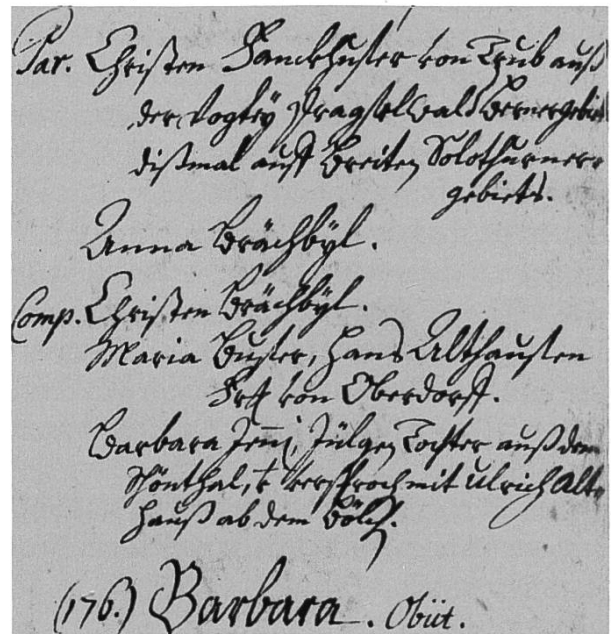 Par. Christen Fanckhuser von Trub auß
der Vogtey Tragselwald Bernergebiet
dißmal auff Breiten Solothurner
gebiets.
Anna Brächbÿl.
Comp. Christen Brächbÿl.
Maria Buser, Hans Althausen
Fr von Oberdorff.
Barbara Jenni, Tochter auß dem
Schönthal, versprochen mit Ulrich Alt
hauß ab dem Bölch.
(176.) Barbara. Obiit.